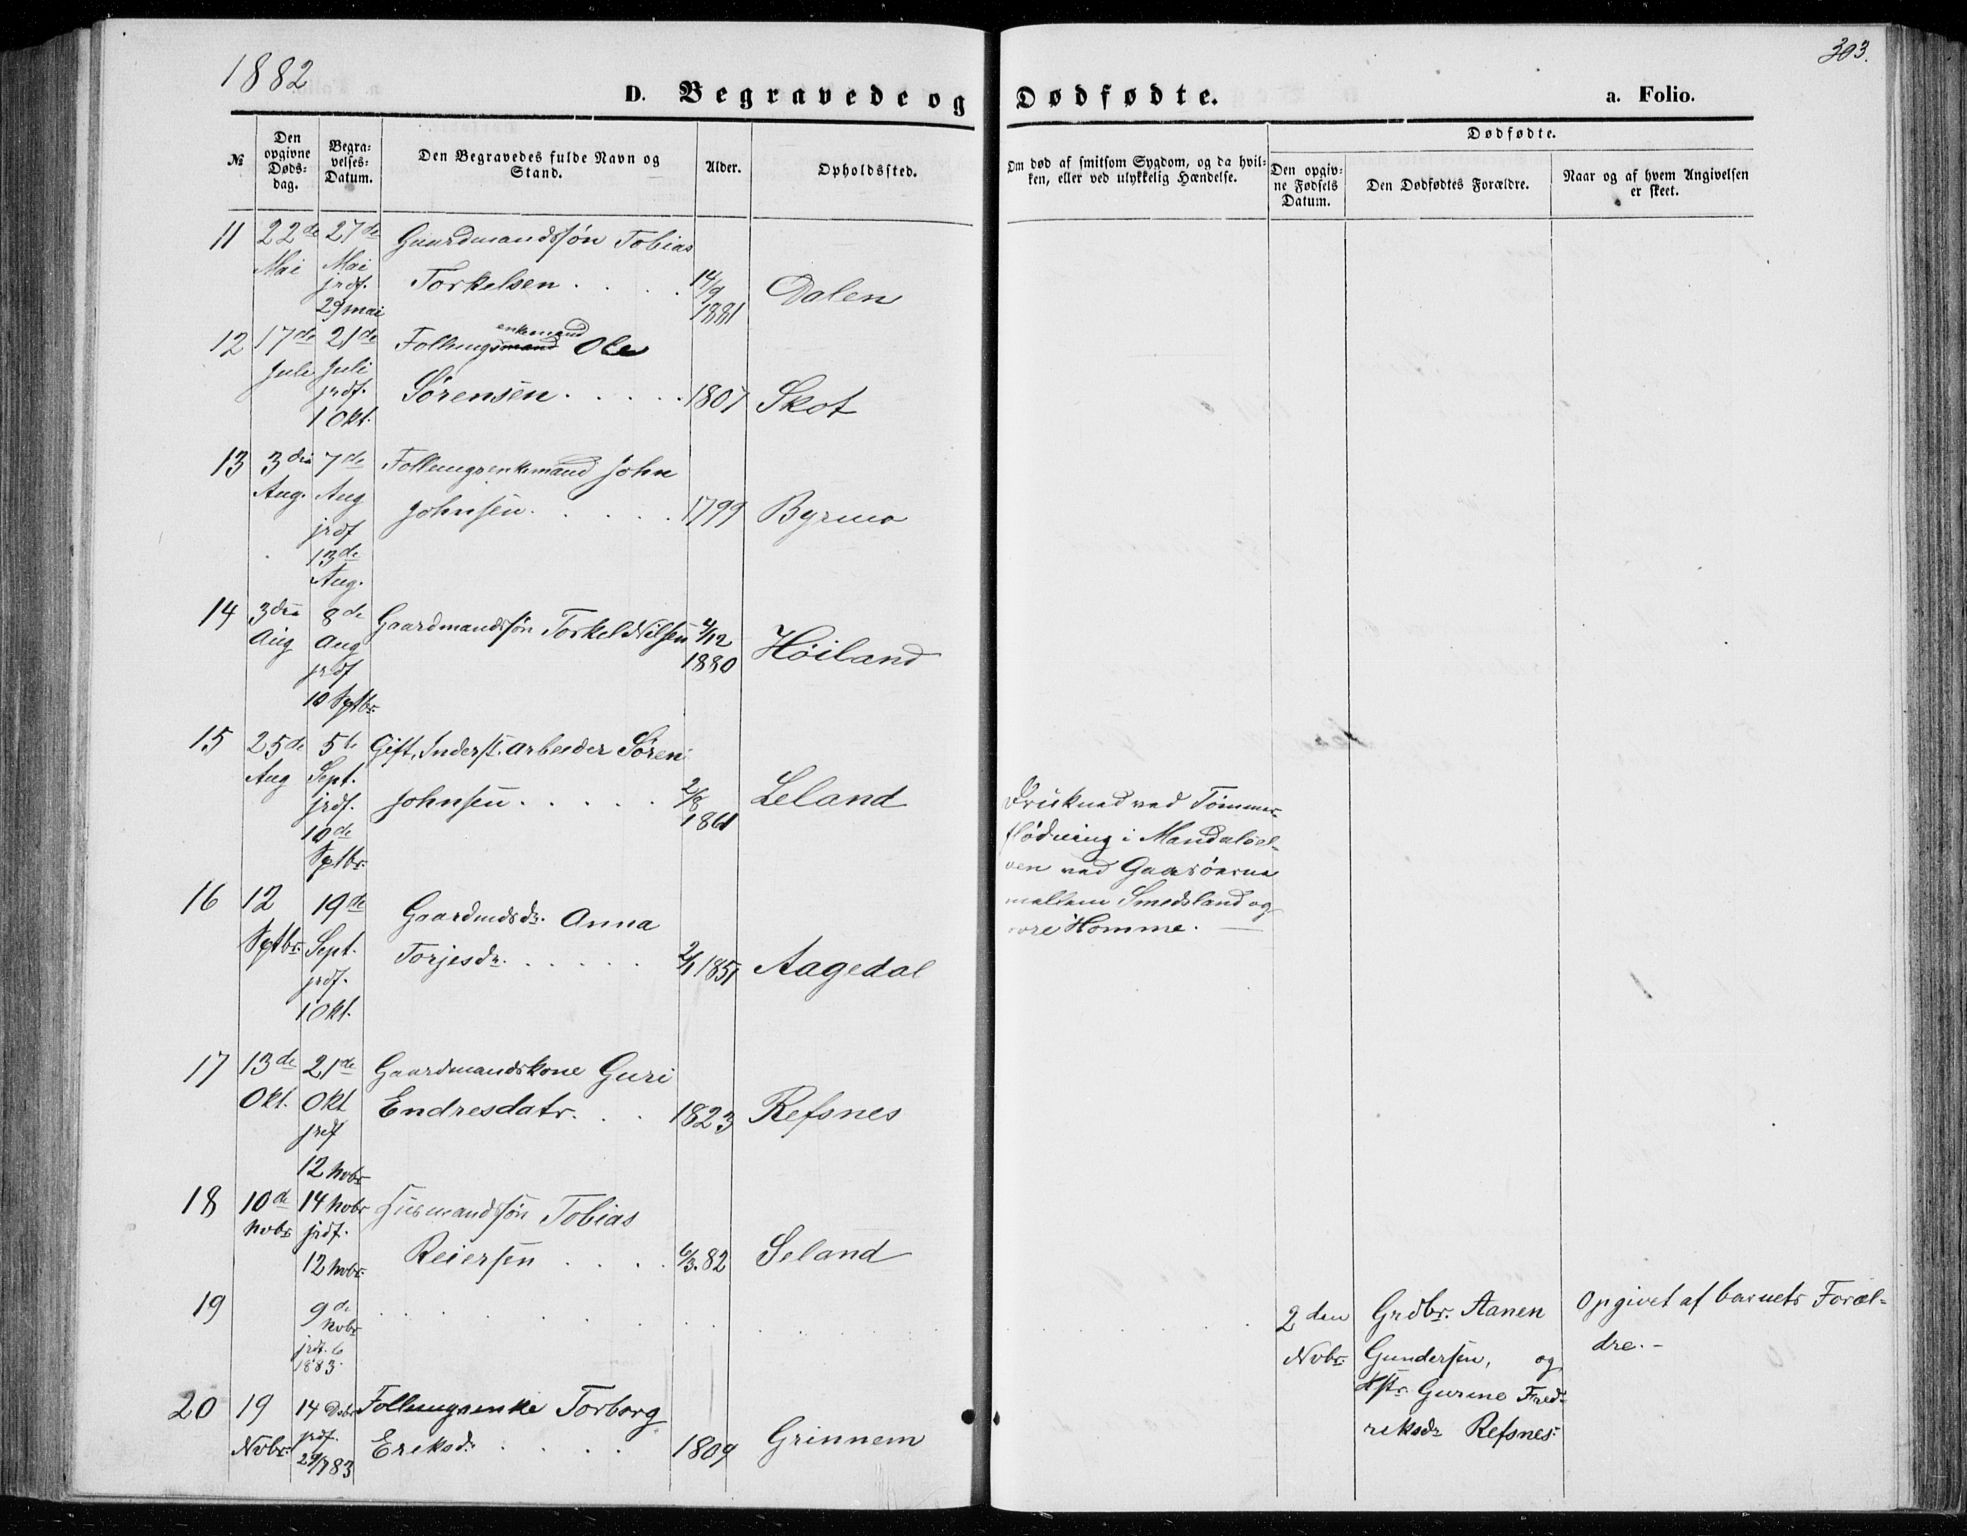 1882
303.
D. Begravede og Dødfødte.
a. Folio.
№
Den opgivne Døds-dag.
Begra-velses-Datum.
Den Begravedes fulde Navn og Stand.
Alder.
Opholdssted.
Om død af smitsom Sygdom, og da hvil-ken, eller ved ulykkelig Hændelse.
Dødfødte.
Den opgiv-ne Fødsels Datum.
Den Dødfødtes Forældre.
Naar og af hvem Angivelsen er skeet.
11 22de 27de Gaardmandssøn Tobias
Mai Mai
jrdf. Torkelsen . . . . 14/9 Dalen
29 mai 1881
12 17de 21de Follaugsmand enkemand Ole
Juli Juli
jrdf. Sørensen . . . . . 1807 Skot
1 Okt.
13 3die 7de Follaugsenkemand John
Aug. Aug
jrdf Johnsen . . . . . 1799 Byrmo
13de
Aug.
14 3die 8de Gaardmandssøn Torkel Nilsen /12 Høiland
Aug Aug 1880
jrdf
10 Sptbr.
15 25de 5te Gift, Inderst. arbeider Søren
Aug Sept.
jrdf. Johnsen . . . . . 2/8 Leland
10de 1861
Sptbr.
Druknede ved Tømmer-
flødning i Mandalsel-
ven ved Gaarøerne
mellem Smedsland og
øvre Homme.
16 12 19de Gaardmdsdr. Anna
Sptbr. Sept. Torjesdr. . . . . . 2/1 1851 Aagedal
jrdf.
1 Okt.
17 13de 21de Gaardmandskone Guri
Okt. Okt Endresdatr. . . 1823 Refsnes
jrdf
12 Nvbr
18 10de 14 Nvbr Husmandssøn Tobias
Nvbr jrdf.
12 Nvbr. Reiersen . . . . 6/3.82 Seland
19 9de
Nvbr
jrdf. 6
1883.
2den Grdbr. Aanen Opgivet af barnets Foræl-
Nvbr. Gundersen, og dre.-
Hstr. Gurine Fred-
riksdr Refsnes.
20 19 14 Dcbr Follaugsenke Torborg
Nvbr. jrdf. Eriksdr . . . . 1809 Grinnem
83